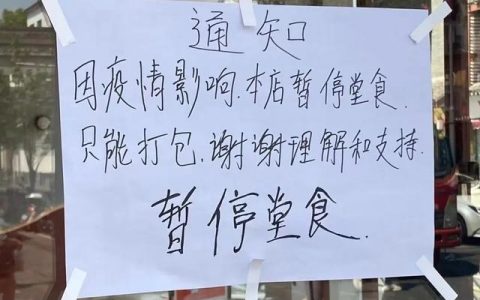 通知
因疫情影响.本店暂停堂食.
只能打包.谢谢理解和支持.
暂停堂食.